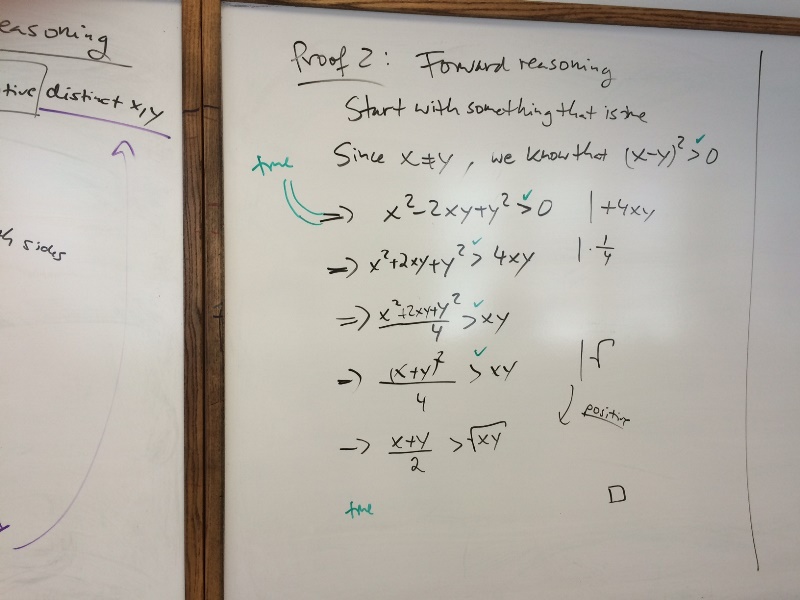 easoning
tive distinct x,y
h sides
Proof 2: Forward reasoning
Start with something that is true
Since x≠y, we know that (x-y)² > 0 ✓
true
=> x²-2xy+y² > 0 ✓ | +4xy
=> x²+2xy+y² > 4xy ✓ | · 1/4
=> (x²+2xy+y²)/4 > xy ✓
=> (x+y)²/4 > xy ✓ | √
positive
=> (x+y)/2 > √xy
true □